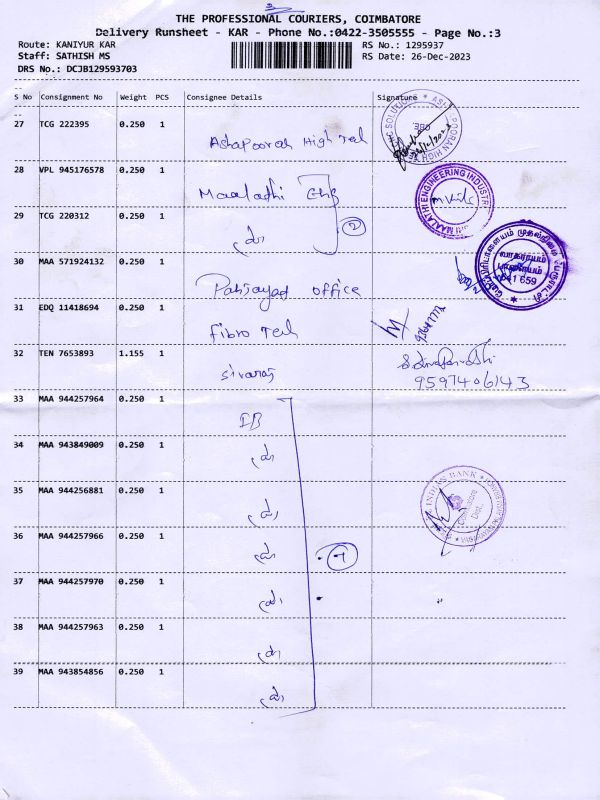 THE PROFESSIONAL COURIERS, COIMBATORE
Delivery Runsheet - KAR - Phone No.:0422-3505555 - Page No.:3
Route: KANIYUR KAR RS No.: 1295937
Staff: SATHISH MS RS Date: 26-Dec-2023
DRS No.: DCJB129593703
S No Consignment No Weight PCS Consignee Details Signature
27 TCG 222395 0.250 1 Ashapoorah High Tech
28 VPL 945176578 0.250 1 Maalathi Eng
29 TCG 220312 0.250 1
2
30 MAA 571924132 0.250 1 office
31 EDQ 11418694 0.250 1 Fibro Tech
32 TEN 7653893 1.155 1 Sivaraj
9597406143
33 MAA 944257964 0.250 1 IB
34 MAA 943849009 0.250 1
35 MAA 944256881 0.250 1
INDIAN BANK
36 MAA 944257966 0.250 1
7
37 MAA 944257970 0.250 1
38 MAA 944257963 0.250 1
39 MAA 943854856 0.250 1
MAALATHI ENGINEERING INDUSTR
641 659